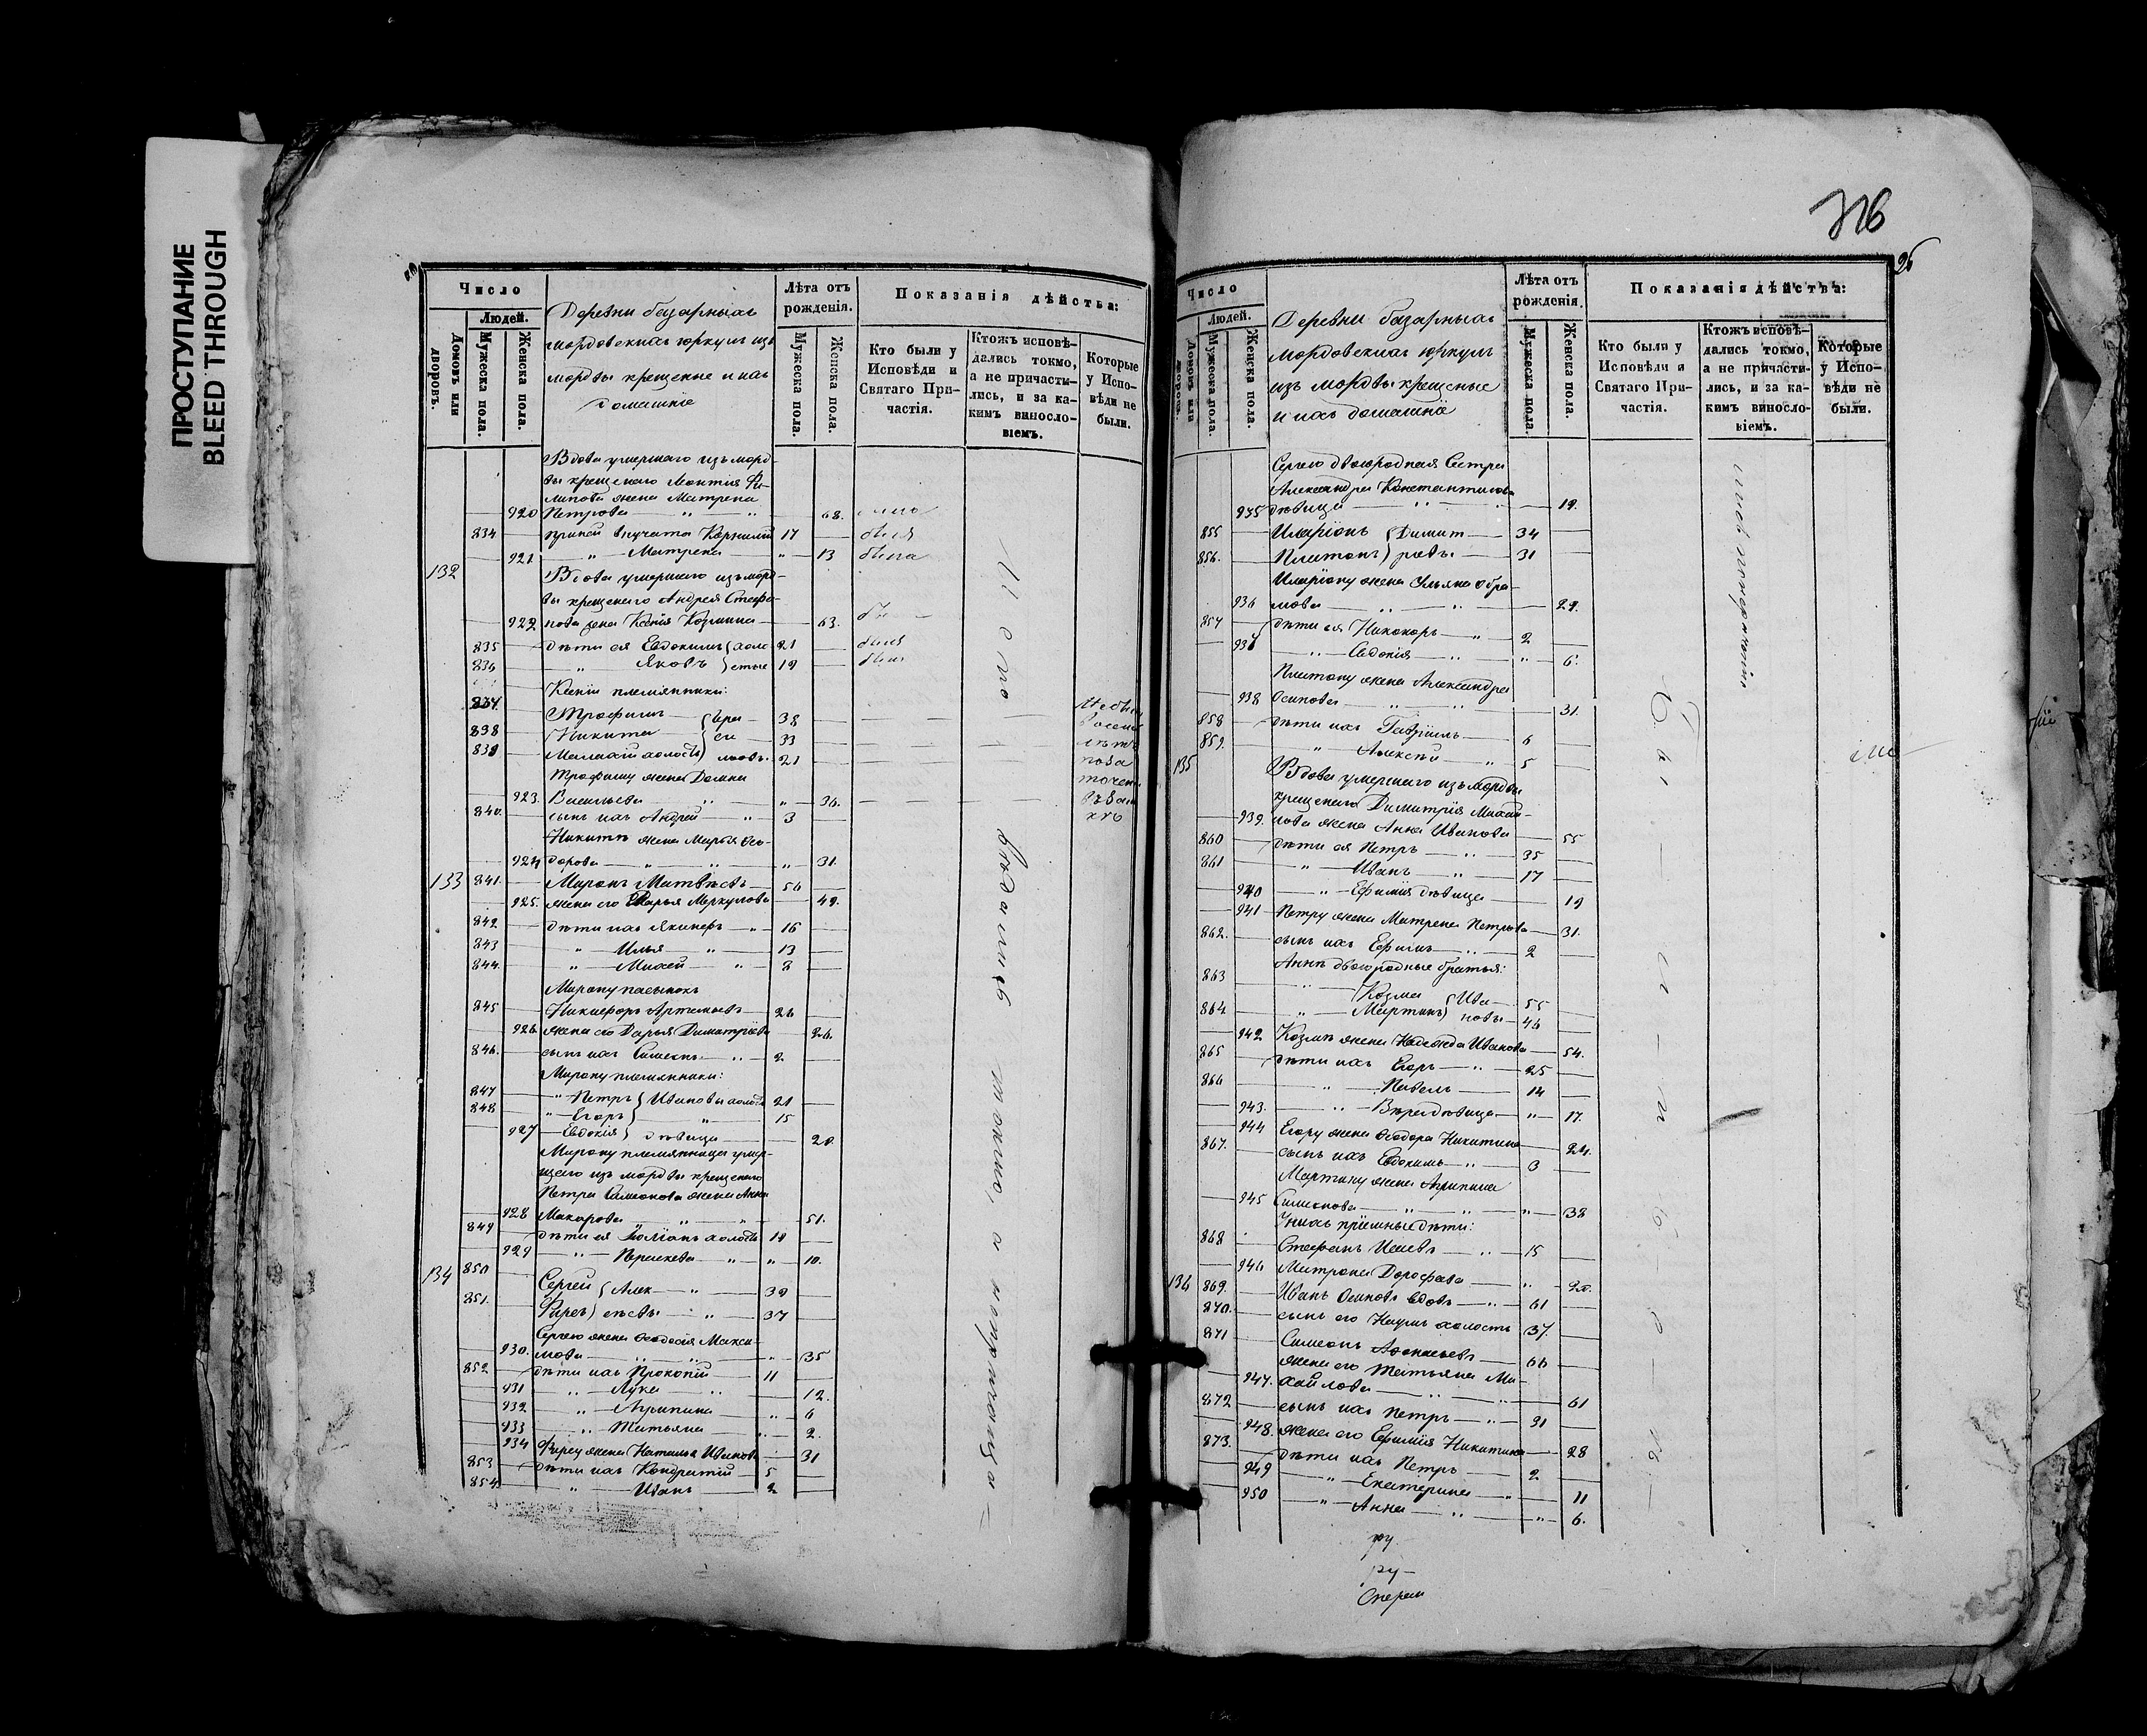 ПРОСТУПАНИЕ
BLEED THROUGH
Число
Людей.
Домовъ или дворовъ.
Мужеска пола.
Женска пола.
Деревни базарныхъ
мордовскихъ юркулъ изъ
мордвы крещеные и ихъ
домашніе
Лѣта отъ рожденія.
Мужеска пола.
Женска пола.
Показанія дѣйства:
Кто были у Исповѣди и Святаго Причастія.
Ктожъ исповѣдались токмо, а не причастились, и за какимъ винословіемъ.
Которые у Исповѣди не были.
Вдова умершаго изъ морд-
вы крещенаго Леонтія Фи-
липова жена Матрена
920 Петрова 68.
834 приней внучата Корнилий 17 былъ
921 Матрена 13 была
132 Вдова умершаго изъ морд-
вы крещенаго Андрея Стефа-
922 нова жена Ксенія Козмина 63.
835 дѣти ея Евдокимъ холо 21 былъ
836 Яковъ стые 19 былъ
Ксеніи племянники:
837. Трофимъ 38
838 Никита 33
839 Малахій холостъ 21
Трофиму жена Домна
923. Васильева 36.
840. сынъ ихъ Андрей 3
Никитѣ жена Марья Ѳео-
924 дорова 31.
133 841. Миронъ Матвѣевъ 56
925. жена его Дарья Меркулова 49.
842 дѣти ихъ Якимъ 16
843 Илья 13
844. Михей 8
Мирону пасынокъ
845 Никифоръ Артемьевъ 26
926 жена его Дарья Димитріева 26.
846. сынъ ихъ Симеонъ 2
Мирону племянники:
847 Петръ Ивановы холост 21
848 Егоръ 15
927 Евдокія дѣвица 20.
Мирону племянница умер-
шаго изъ мордвы крещенаго
Петра Симеонова жена Анна
928 Макарова 51.
849 дѣти ея холостъ 19
929 Параскева 10.
134 850 Сергей Алек 39
851. Фирсъ сѣевы 37
Сергею жена Ѳеодосія Макси-
930. мова 35
852 дѣти ихъ Прокопій 11
931 Лукія 12.
932 Агрипина 6
933 Татьяна 2.
934 Фирсу жена Наталья Иванова 31
853 дѣти ихъ Кондратій 5
854. Иванъ 2
Исповѣдались токмо, а непричастил
316
26
Число
Людей.
Домовъ или дворовъ.
Мужеска пола.
Женска пола.
Деревни базарныхъ
мордовскихъ юркулъ
изъ мордвы крещеные
и ихъ домашніе
Лѣта отъ рожденія.
Мужеска пола.
Женска пола.
Показанія дѣйства:
Кто были у Исповѣди и Святаго Причастія.
Ктожъ исповѣдались токмо, а не причастились, и за какимъ винословіемъ.
Которые у Исповѣди не были.
Сергею двоюродная Сестра
Александра Константинова
935 дѣвица 19.
855 Иларіонъ Димит 34
856. Платонъ ріевы 31
Иларіону жена Ульяна Абра-
936 мова 29.
857 дѣти ея Никаноръ 2
937 Евдокія 6.
Платону жена Александра
938 Осипова 31.
858 дѣти ихъ Гавріилъ 6
859. Алексѣй 5
135 Вдова умершаго изъ мордвы
крещенаго Димитрія Михай-
939. лова жена Анна Иванова 55
860 дѣти ея Петръ 35
861 Иванъ 17
940 Ефимія дѣвица 19
941 Петру жена Матрена Петрова 31.
862. сынъ ихъ Ефимъ 2
Аннѣ двоюродные братья:
863 Козма Ива 55
864 Мартинъ новы 46
942 Козмѣ жена Надежда Иванова 54.
865 дѣти ихъ Егоръ 25
866 Павелъ 14
943. Вѣра дѣвица 17.
944 Егору жена Ѳеодора Никитина 24.
867. сынъ ихъ Евдокимъ 3
Мартину жена Агрипина
945 Симеонова 38
У нихъ пріемные дѣти:
868 Стефанъ Исаевъ 15
946 Матрона Дорофеева 20.
136 869. Иванъ Осиповъ вдовъ 61
870. сынъ его Наумъ холостъ 37.
871 Симеонъ Афанасьевъ 66
жена его Татьяна Ми-
947. хайлова 61
872 сынъ ихъ Петръ 31
948. жена его Ефимія Никитина 28
873. дѣти ихъ Петръ 2
949 Екатерина 11
950 Анна 6.